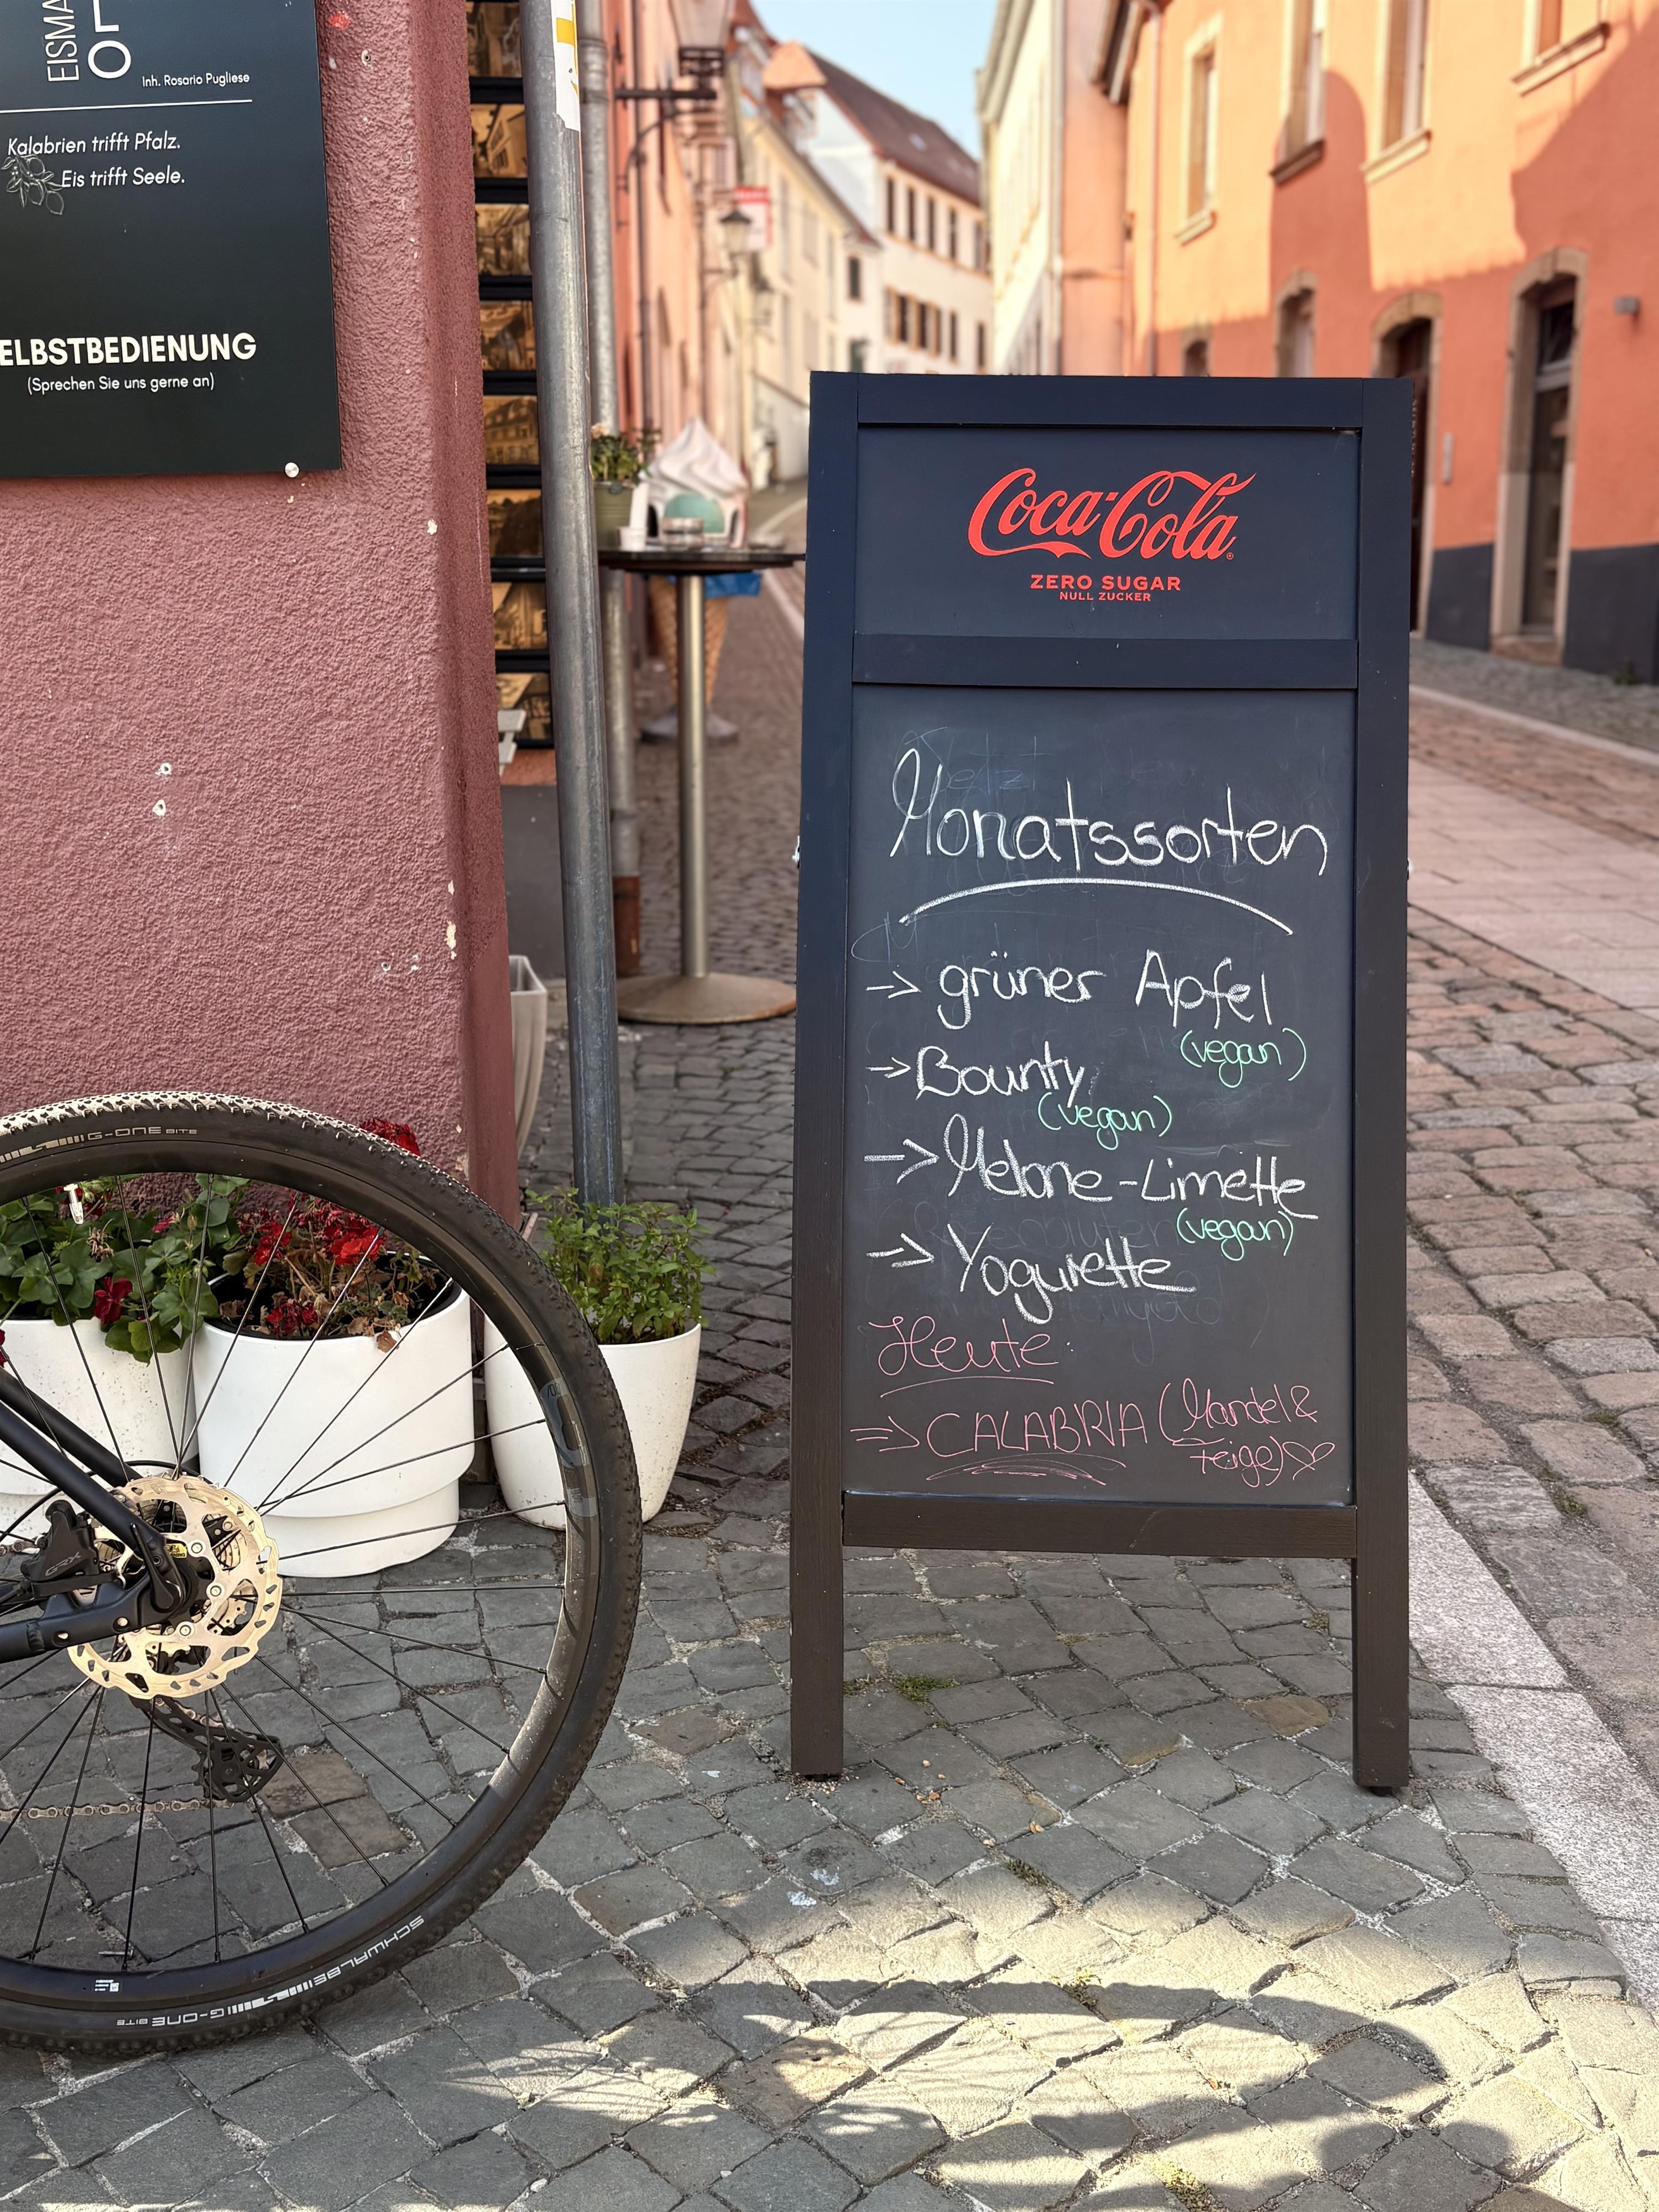 EISMA
LO
Inh. Rosario Pugliese
Kalabrien trifft Pfalz.
Eis trifft Seele.
ELBSTBEDIENUNG
(Sprechen Sie uns gerne an)
Coca-Cola
ZERO SUGAR
NULL ZUCKER
Monatssorten
→ grüner Apfel
(vegan)
→ Bounty
(vegan)
→ Melone-Limette
(vegan)
→ Yogurette
Heute:
⇒ CALABRIA (Mandel &
Feige) ♡
G-ONE BITE
GRX
SCHWALBE G-ONE BITE